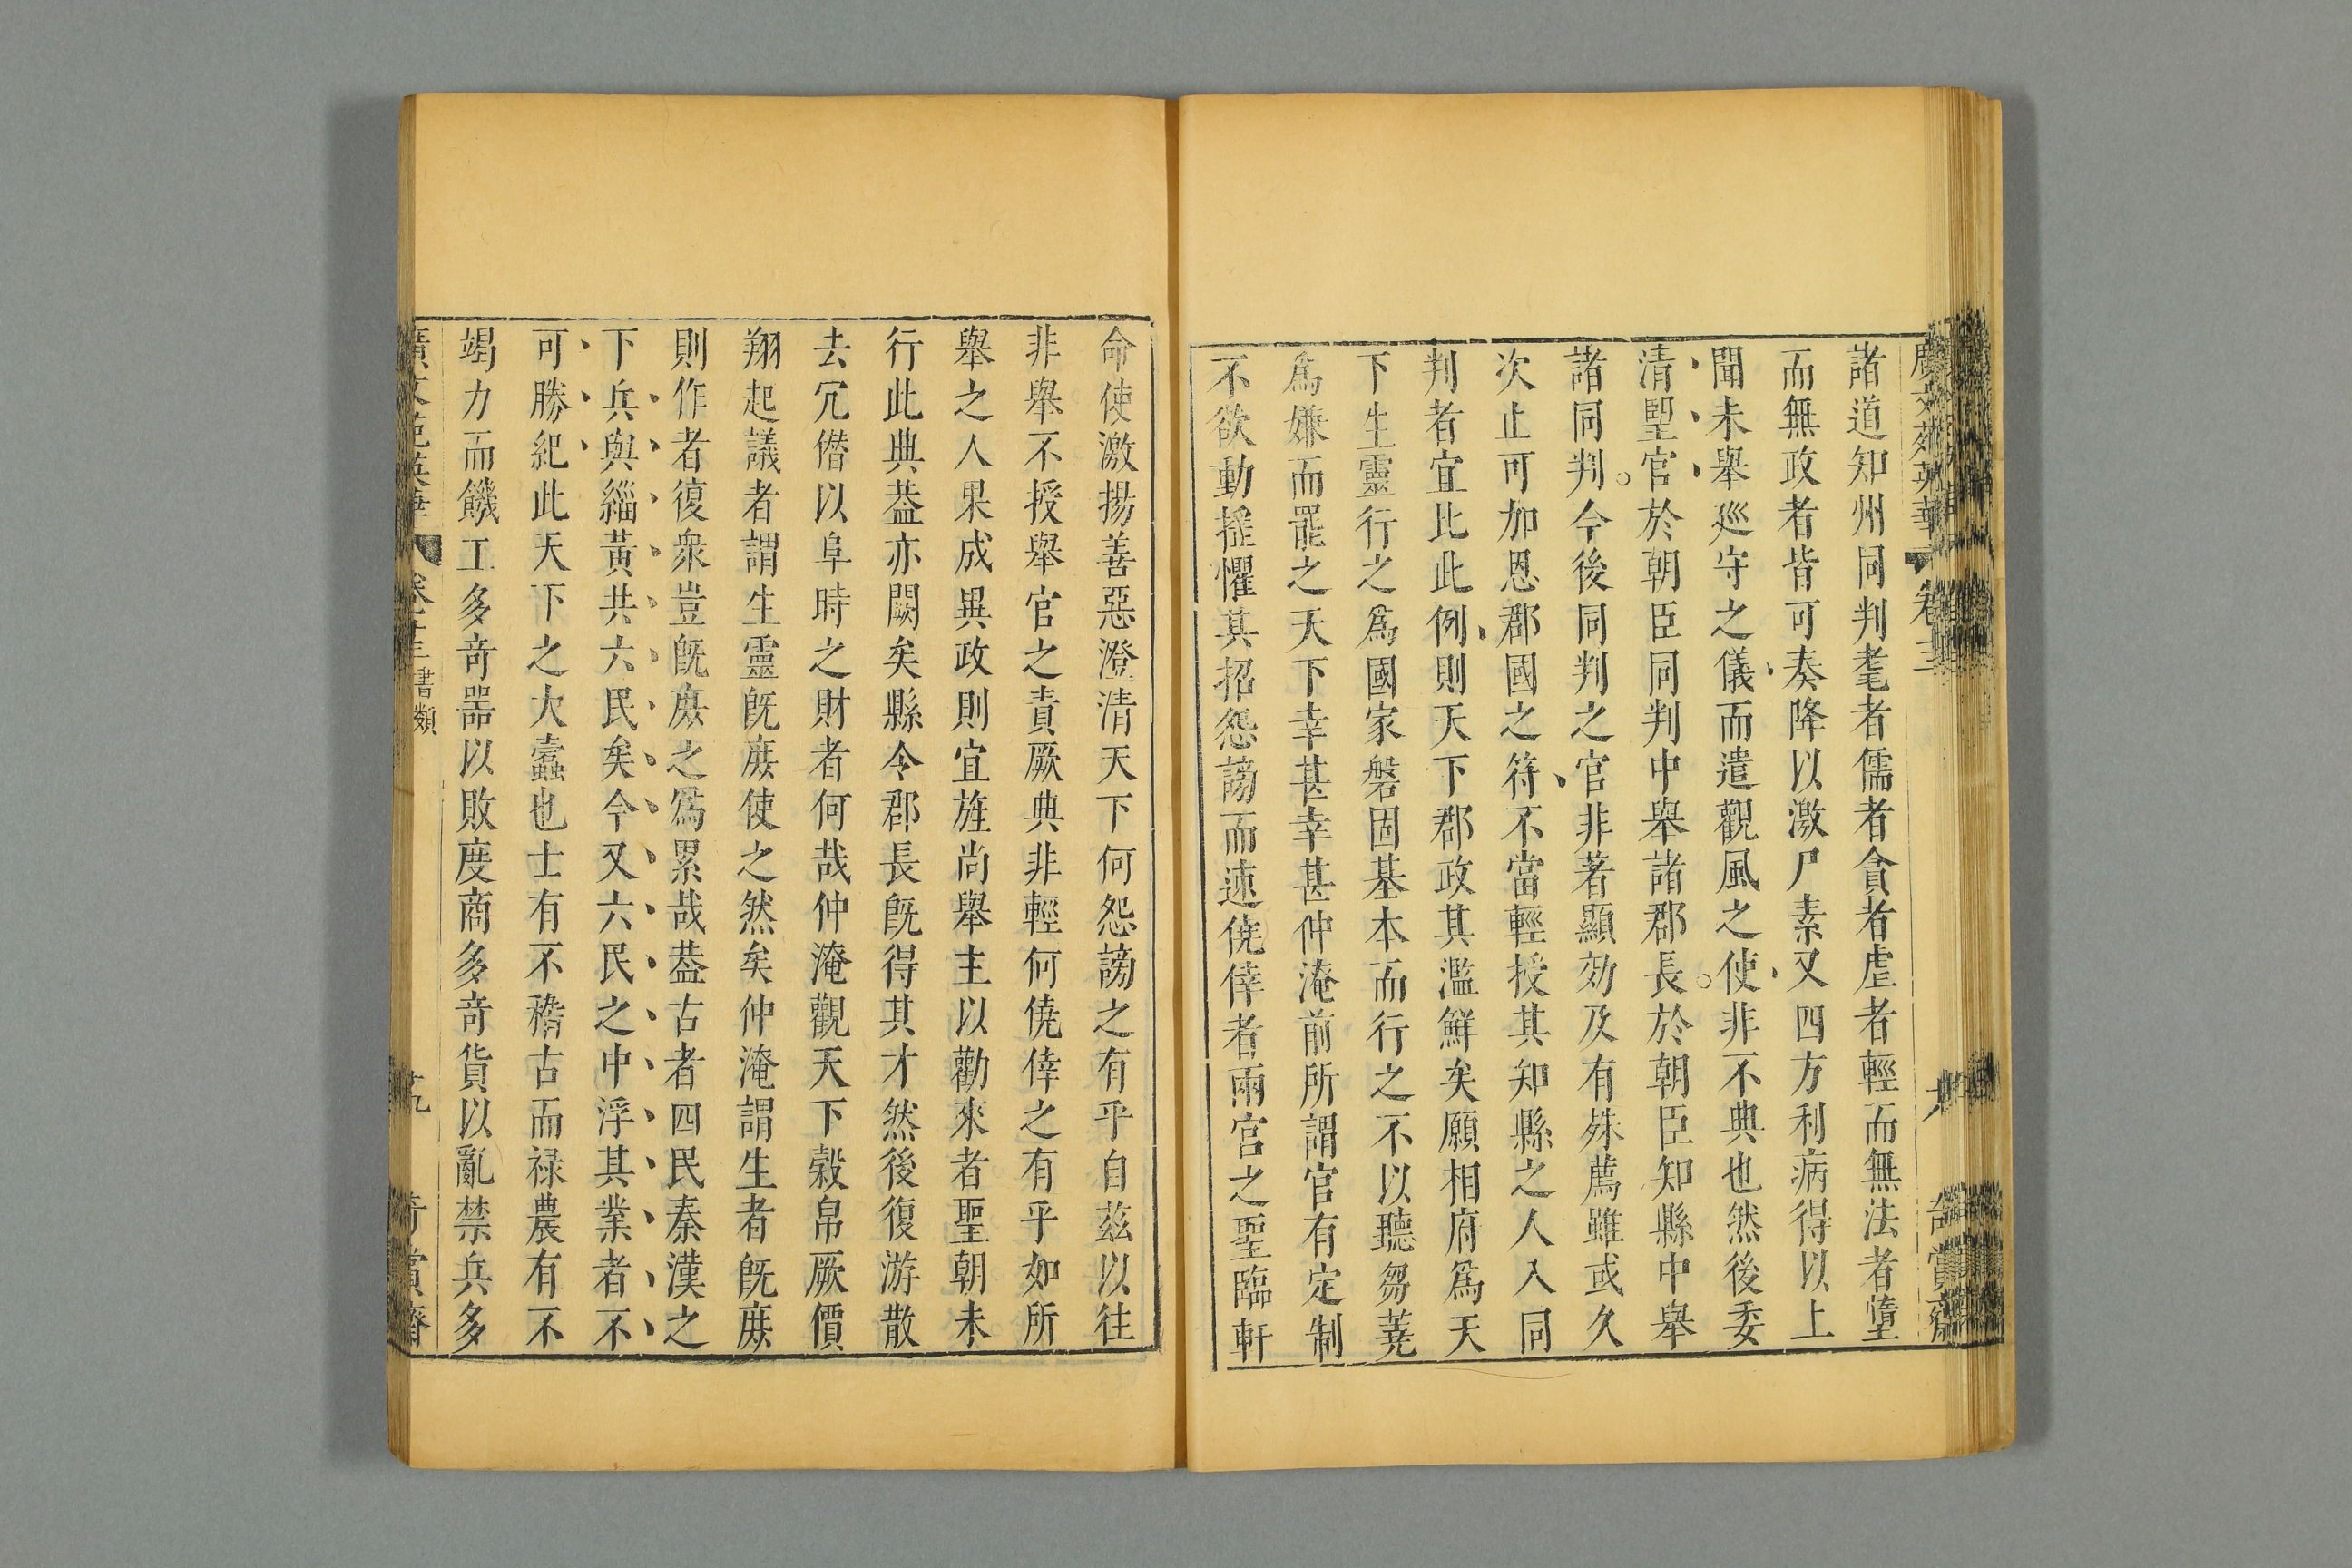 諸道知州同判耄者儒者貪者虐者輕而無法者墮
而無政者皆可奏降以激尸素又四方利病得以上
聞未舉廵守之儀而遣觀風之使非不典也然後委
清朢官於朝臣同判中舉諸郡長於朝臣知縣中舉
諸同判今後同判之官非著顯効及有殊薦雖或久
次止可加恩郡國之符不當輕授其知縣之人入同
判者宜比此例則天下郡政其濫鮮矣願相府爲天
下生靈行之爲國家磐固基本而行之不以聽芻蕘
爲嫌而罷之天下幸甚幸甚仲淹前所謂官有定制
不欲動揺懼其招怨謗而速僥倖者兩宫之聖臨軒
命使激揚善惡澄清天下何怨謗之有乎自茲以往
非舉不授舉官之責厥典非輕何僥倖之有乎如所
舉之人果成異政則宜旌尚舉主以勸來者聖朝未
行此典葢亦闕矣縣令郡長旣得其才然後復游散
去冗僭以阜時之財者何哉仲淹觀天下榖帛厥價
翔起議者謂生靈旣庻使之然矣仲淹謂生者旣庻
則作者復衆豈旣庻之爲累哉葢古者四民秦漢之
下兵與緇黃共六民矣今又六民之中浮其業者不
可勝紀此天下之大蠧也士有不稽古而禄農有不
竭力而饑工多竒噐以敗度商多竒貨以亂禁兵多
書類